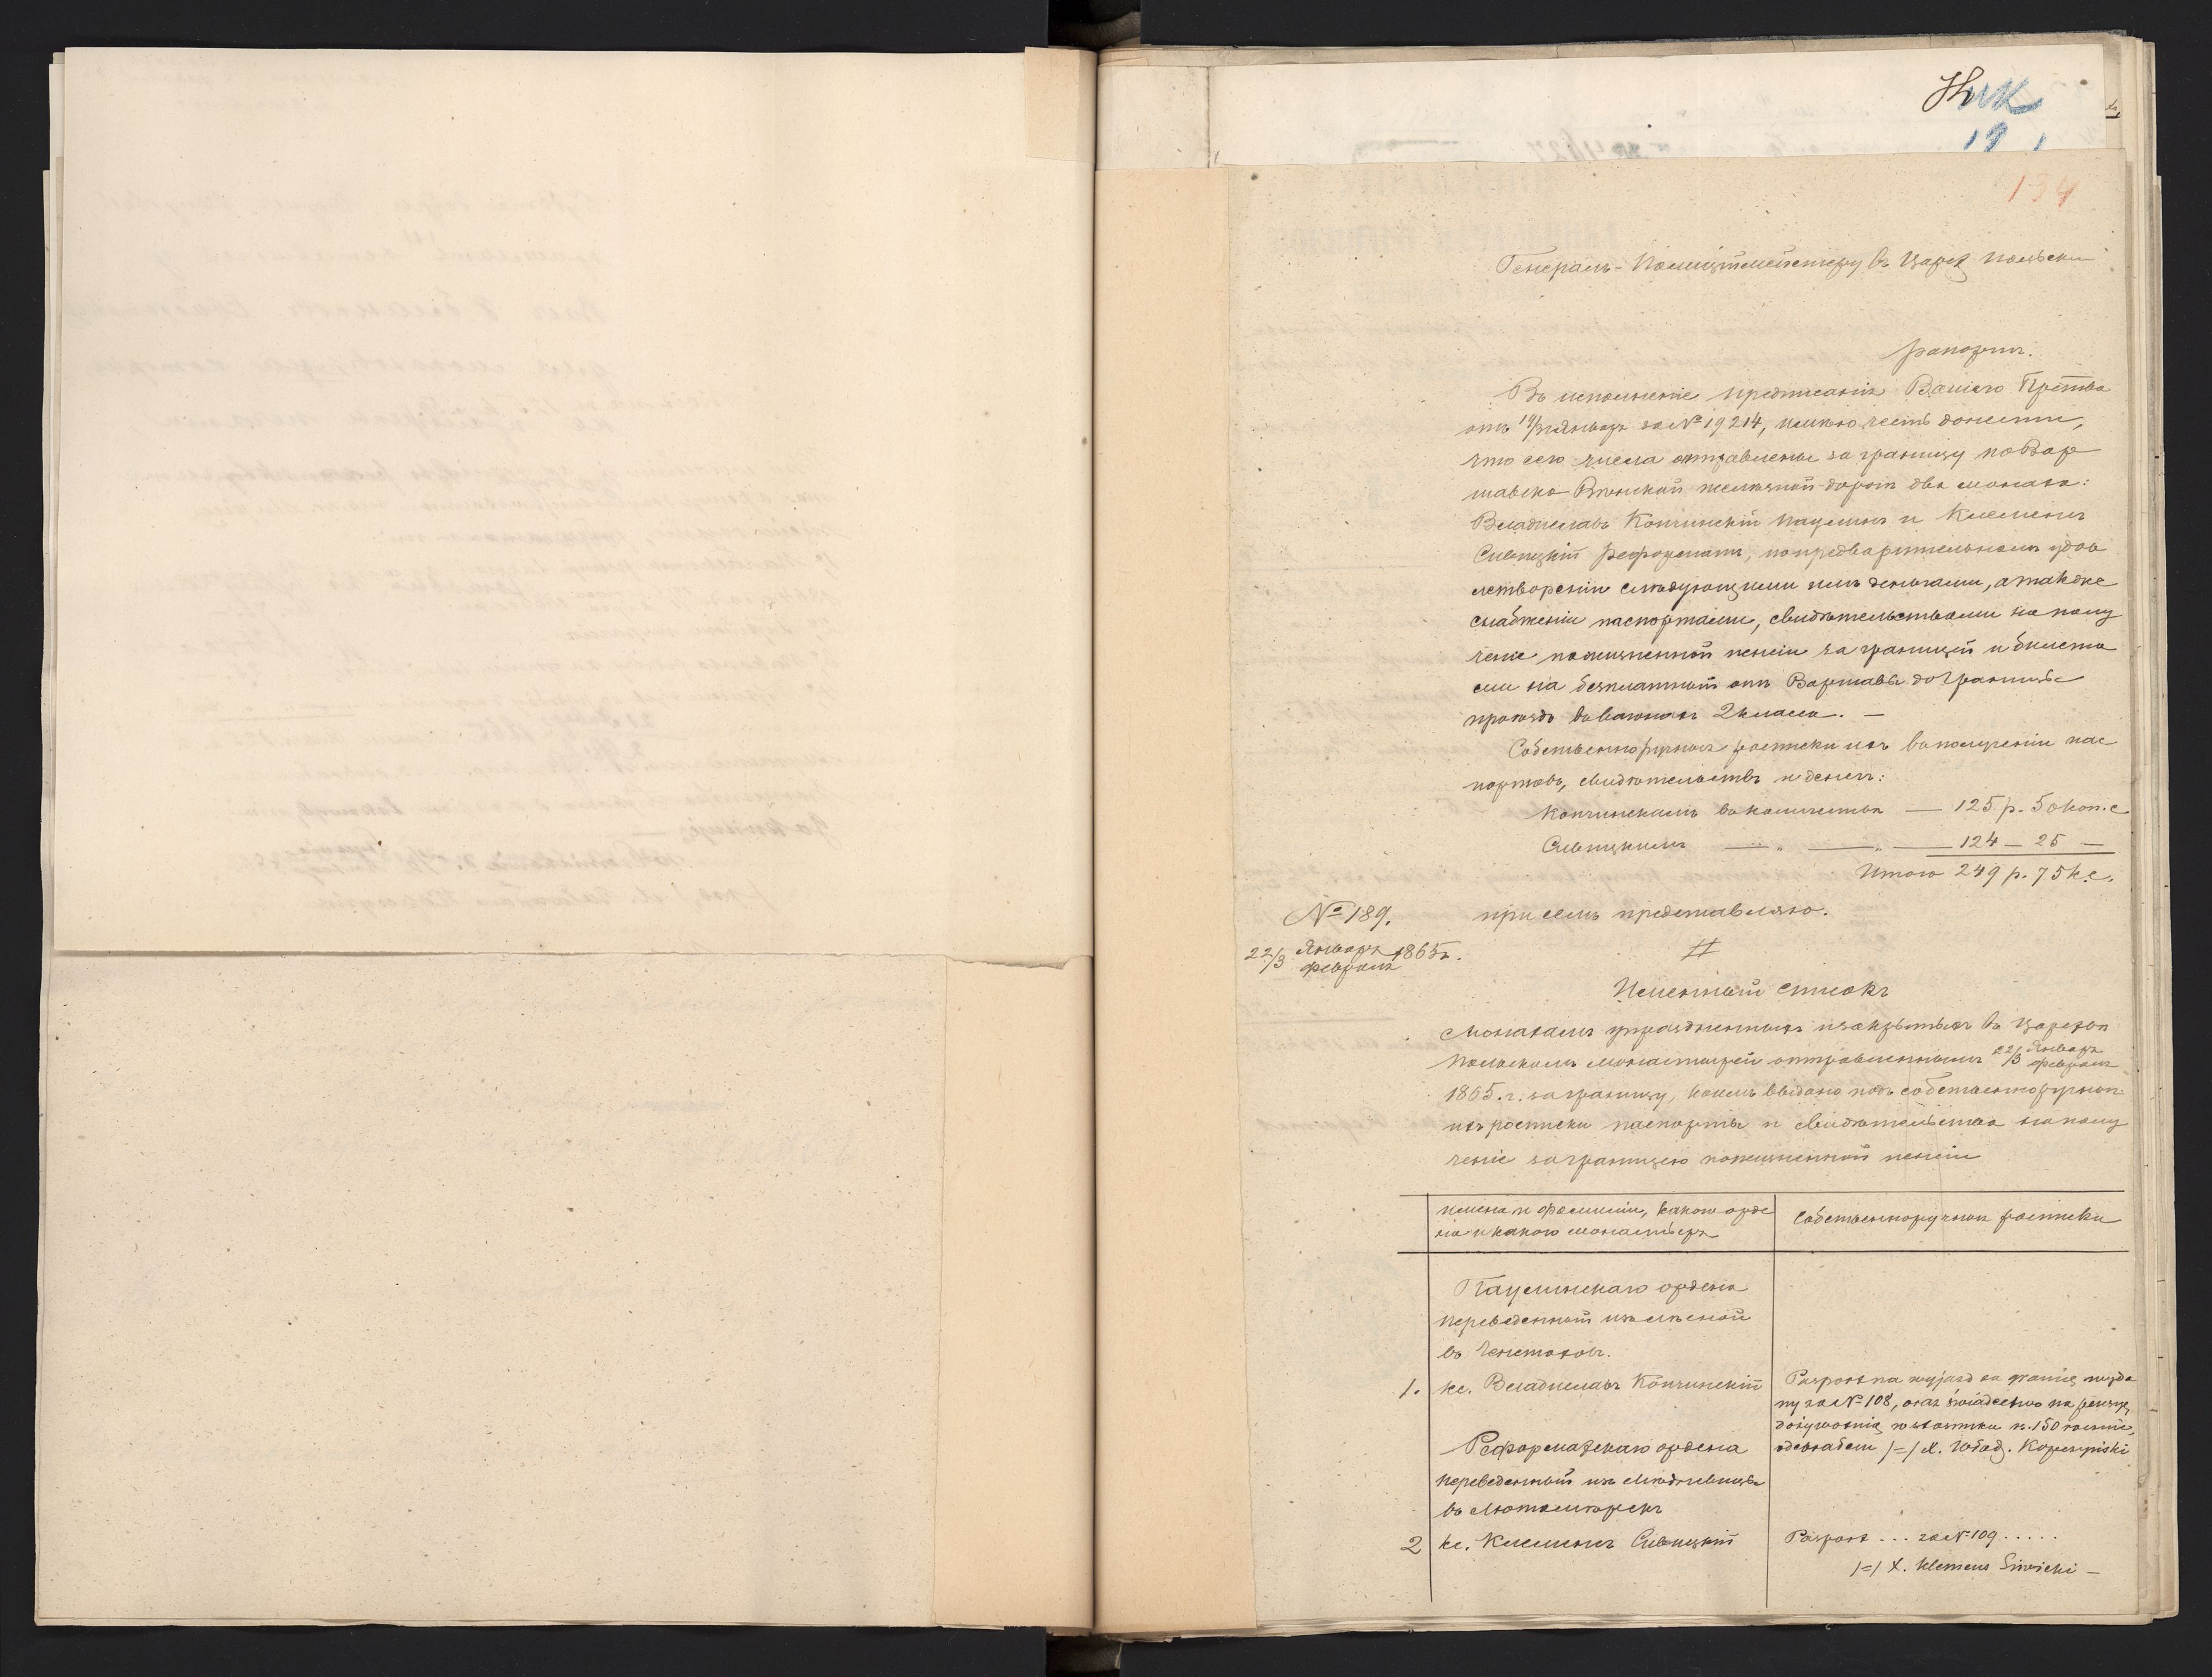 194
Генералъ-Полицiймейстеру въ Царст Польском
рапортъ.
Въ исполненiе предписанiя Вашего Пр-ства
отъ 19/31 Января за № 19214, имѣю честь донести,
что сего числа отправлены за границу по Вар
шавско-Вѣнской желѣзной дорогѣ два монаха:
Владиславъ Копчинскiй Паулинъ и Климентъ
Сивицкiй Реформатъ, по предварительномъ удов
летворенiи слѣдующими имъ деньгами, а также
снабженiи паспортами, свидѣтельствами на полу
ченiе пожизненной пенсiи за границей и билета
ми на безплатный отъ Варшавы до Границы
проѣздъ въ вагонахъ 2 класса. —
Собственноручныя росписки ихъ въ полученiи пас
портовъ, свидѣтельствъ и денегъ:
Копчинскимъ въ количествѣ — 125 р. 50 коп. с
Сивицкимъ — „ — „ — 124 — 25 —
Итого 249 р. 75 к. с.
№ 189. при семъ представляю.
22/3 Января/Февраля 1865 г.
Именный списокъ
Монахамъ упраздненныхъ и закрытыхъ въ Царствѣ
Польскомъ Монастырей отправленнымъ 22/3 Января/Февраля
1865 г. заграницу, коимъ выдано подъ собственноручныя
ихъ росписки паспорты и свидѣтельства на полу
ченiе заграницею пожизненной пенсiи
имена и фамилiи, какого орде
на и какого монастыря
Собственноручныя росписки
Паулинскаго ордена
переведенный изъ
въ Ченстоховъ.
1. кс. Владиславъ Копчинскiй
Paszport na wyjazd za granicę wyda
ny za № 108, oraz świadectwo na pensyę
dożywotnią w stosunku rs. 150 rocznie,
odebrałem /=/ X. Wład. Kopczyński
Реформатскаго ордена
переведенный изъ
въ
2 кс. Климентъ Сивицкiй
Paszport ... za № 109 .....
/=/ X. Klemens Siwicki —